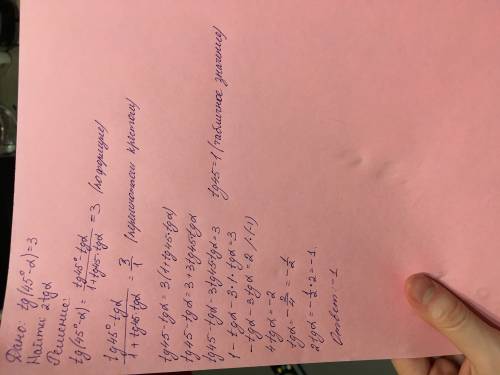 Дано: tg(45°-α)=3
Найти: 2tgα
Решение:
tg(45°-α) = tg45°-tgα / 1+tg45·tgα = 3 (по формуле)
tg45°-tgα / 1+tg45·tgα = 3/1 (перемножаем крестом)
tg45-tgα = 3(1+tg45·tgα)
tg45-tgα = 3+3tg45·tgα
tg45-tgα-3tg45tgα=3 tg45=1 (табличное значение)
1-tgα-3·1·tgα=3
-tgα-3tgα=2 /·(-1)
4tgα=-2
tgα=-2/4=-1/2
2tgα=-1/2·2=-1.
Ответ: -1